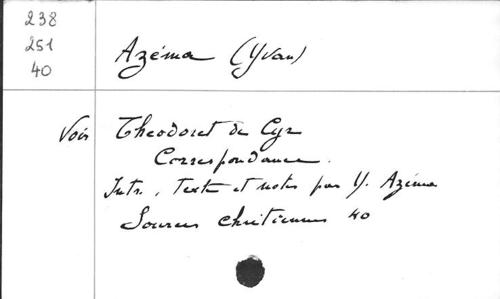 238
251
40
Azéma (Yvan)
Voir Theodoret de Cyr
Correspondance.
Intr., texte et notes par Y. Azéma
Sources chrétiennes 40